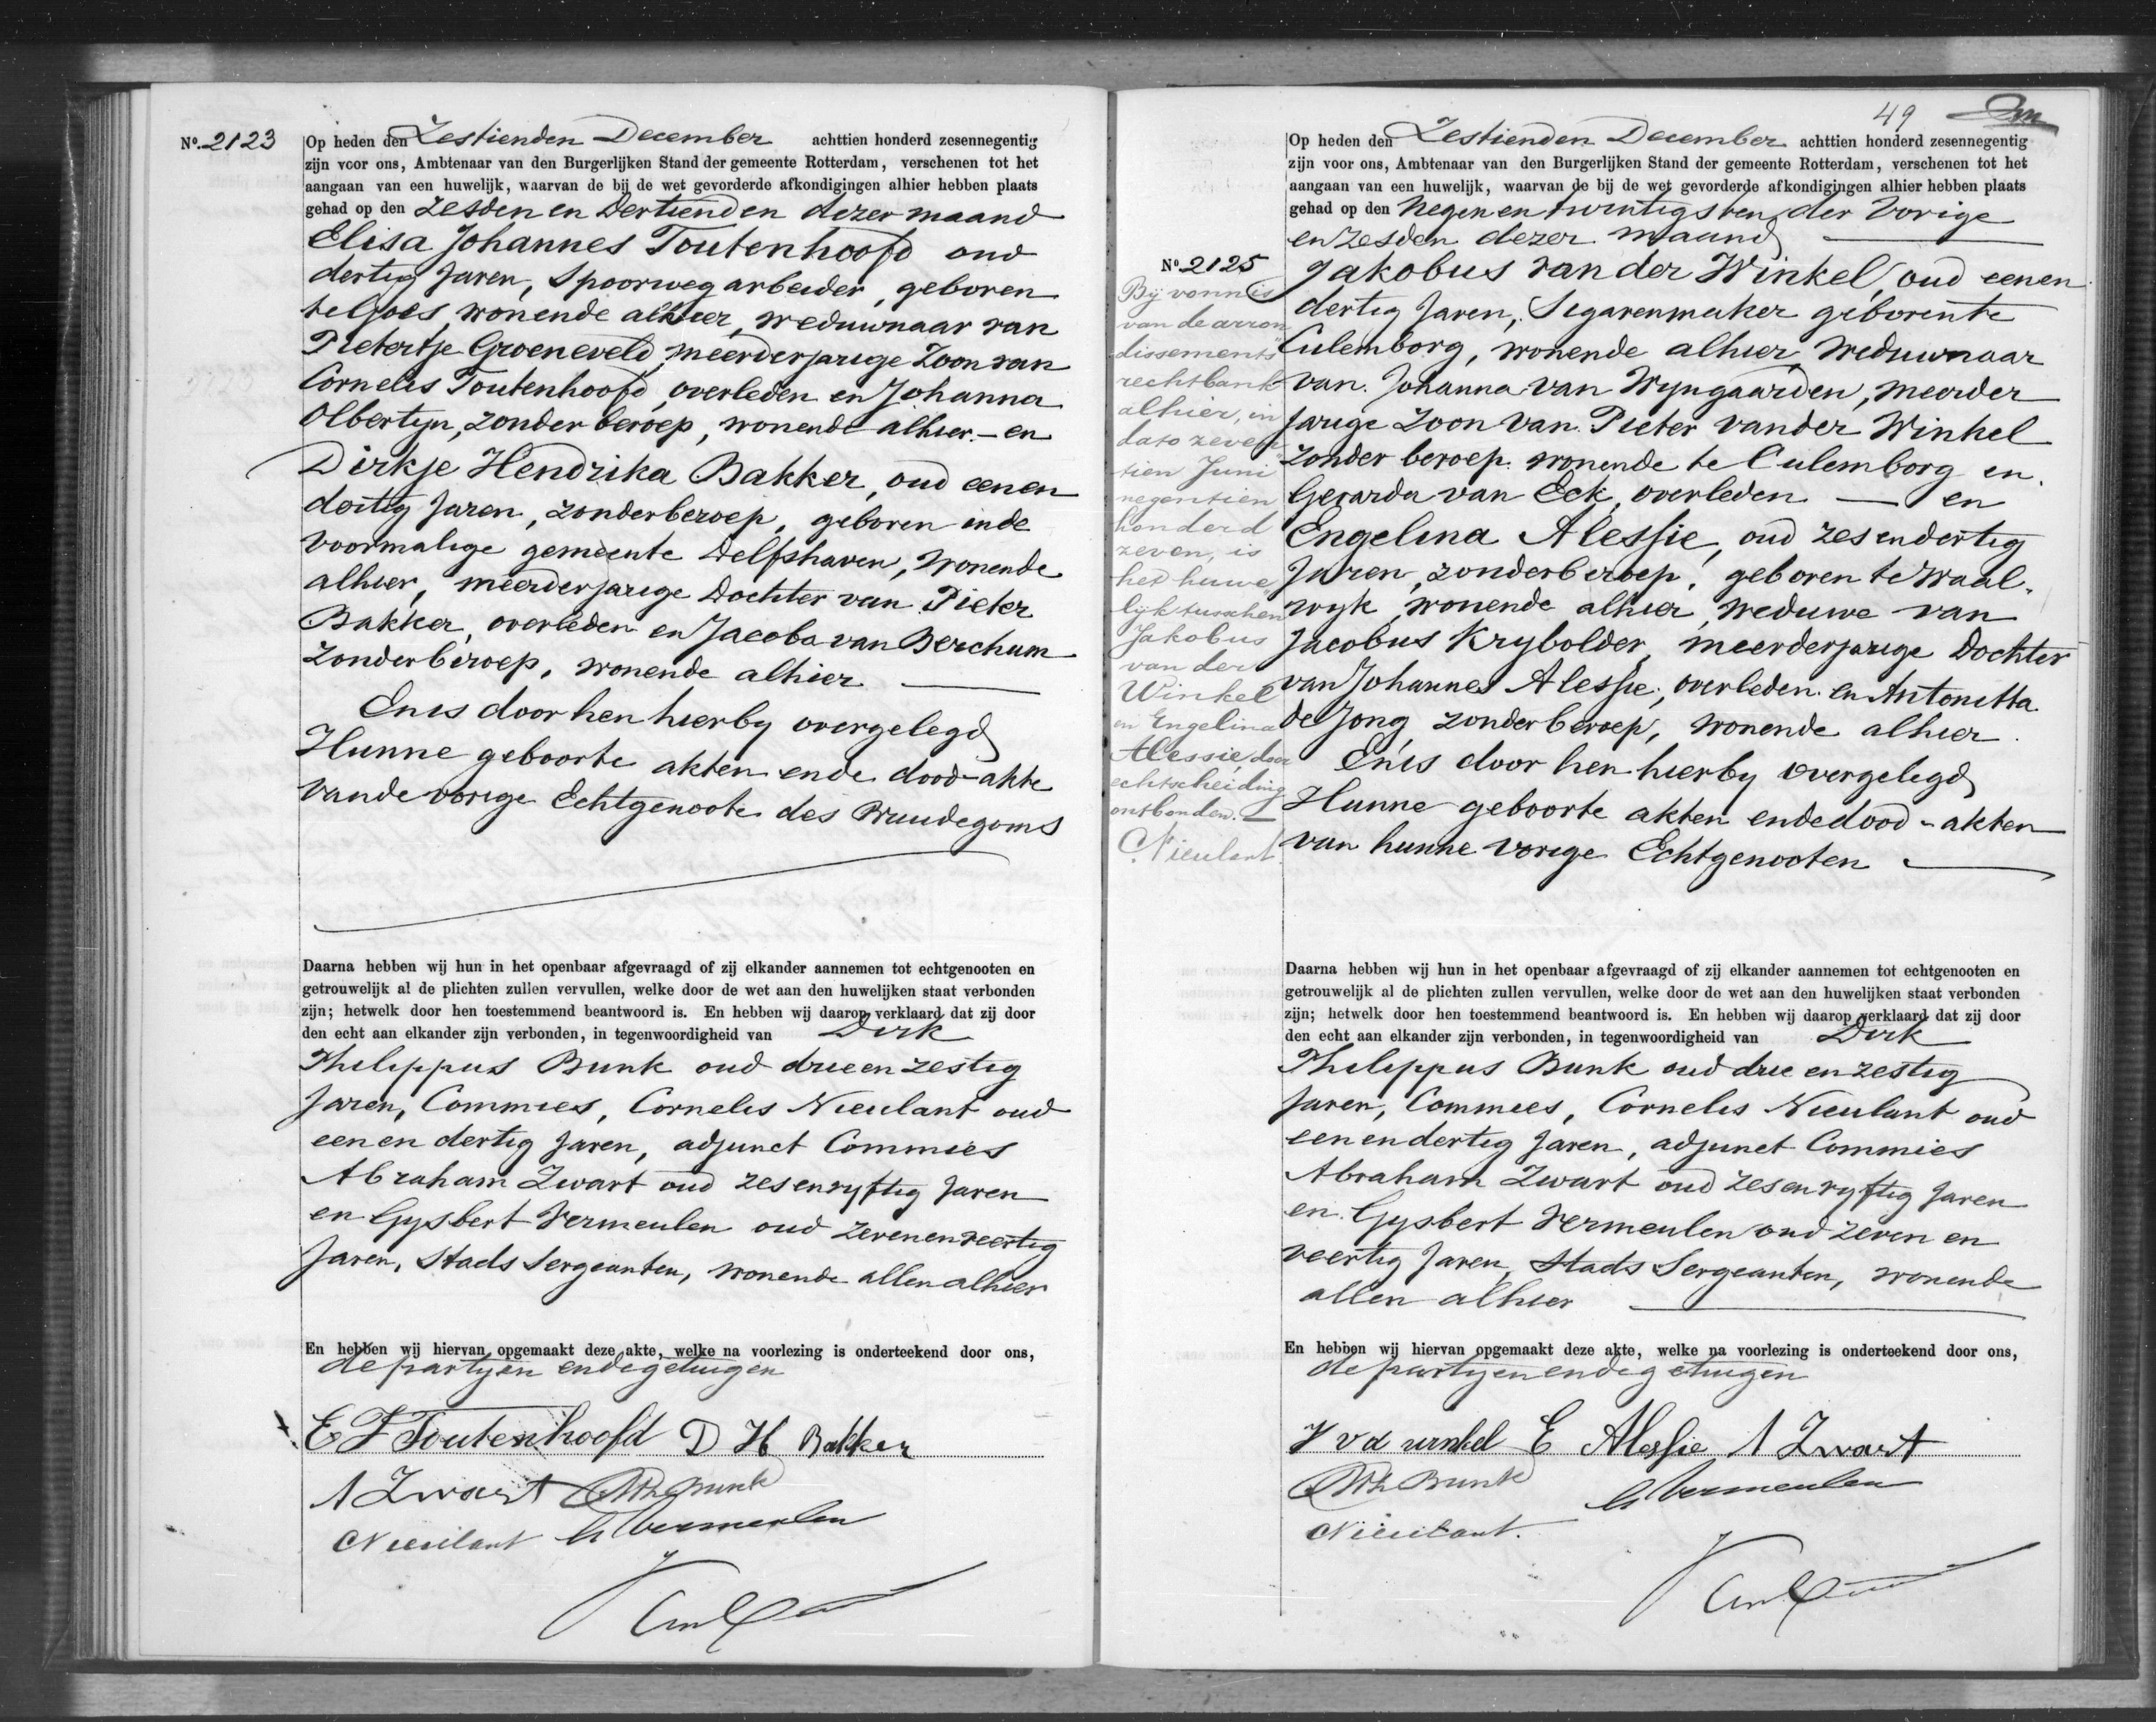 No. 2123
Op heden den Zestienden December achttien honderd zesennegentig
zijn voor ons, Ambtenaar van den Burgerlijken Stand der gemeente Rotterdam, verschenen tot het
aangaan van een huwelijk, waarvan de bij de wet gevorderde afkondigingen alhier hebben plaats
gehad op den Zesden en Dertienden dezer maand
Elisa Johannes Toutenhoofd oud
dertig Jaren, Spoorwegarbeider, geboren
te Goes, wonende alhier, weduwnaar van
Pietertje Groeneveld, meerderjarige Zoon van
Cornelis Toutenhoofd, overleden en Johanna
Olbertijn, zonder beroep, wonende alhier. — en
Dirkje Hendrika Bakker, oud eenen
dertig Jaren, zonder beroep, geboren in de
voormalige gemeente Delfshaven, wonende
alhier, meerderjarige Dochter van Pieter
Bakker, overleden en Jacoba van Berchum
zonder beroep, wonende alhier
En is door hen hierby overgelegd
Hunne geboorte akten en de dood-akte
van de vorige Echtgenoote des Bruidegoms
Daarna hebben wij hun in het openbaar afgevraagd of zij elkander aannemen tot echtgenooten en
getrouwelijk al de plichten zullen vervullen, welke door de wet aan den huwelijken staat verbonden
zijn; hetwelk door hen toestemmend beantwoord is. En hebben wij daarop verklaard dat zij door
den echt aan elkander zijn verbonden, in tegenwoordigheid van Dirk
Philippus Bunk oud drie en zestig
Jaren, Commies, Cornelis Nieulant oud
een en dertig Jaren, adjunct Commies
Abraham Zwart oud zes en vyftig Jaren
en Gysbert Vermeulen oud zeven en veertig
Jaren, Stads Sergeanten, wonende allen alhier
En hebben wij hiervan opgemaakt deze akte, welke na voorlezing is onderteekend door ons,
de partyen en de getuigen
E J Toutenhoofd D H Bakker
A Zwart DPh Bunk
CNieulant G Vermeulen
49
Op heden den Zestienden December achttien honderd zesennegentig
zijn voor ons, Ambtenaar van den Burgerlijken Stand der gemeente Rotterdam, verschenen tot het
aangaan van een huwelijk, waarvan de bij de wet gevorderde afkondigingen alhier hebben plaats
gehad op den Negen en twintigsten der Vorige
en zesden dezer maand
No. 2125
Jakobus van der Winkel, oud eenen
dertig Jaren, Segarenmaker geboren te
Culemborg, wonende alhier, weduwnaar
van Johanna van Wyngaarden, meerder
jarige Zoon van Pieter van der Winkel
zonder beroep, wonende te Culemborg en
Gerarda van Eck, overleden — en
Engelina Alessie, oud zes en dertig
Jaren, zonder beroep, geboren te Waal-
wyk, wonende alhier, weduwe van
Jacobus Krybolder, meerderjarige Dochter
van Johannes Alessie, overleden en Antonetta
de Jong, zonder beroep, wonende alhier.
En is door hen hierby overgelegd
Hunne geboorte akten en de dood-akten
van hunne vorige Echtgenooten
By vonnis
van de arron
dissements
rechtbank
alhier, in
dato zeven
tien Juni
negentien
honderd
zeven, is
het huwe
lijk tusschen
Jakobus
van der
Winkel
en Engelina
Alessie, door
echtscheiding
ontbonden.
CNieulant
Daarna hebben wij hun in het openbaar afgevraagd of zij elkander aannemen tot echtgenooten en
getrouwelijk al de plichten zullen vervullen, welke door de wet aan den huwelijken staat verbonden
zijn; hetwelk door hen toestemmend beantwoord is. En hebben wij daarop verklaard dat zij door
den echt aan elkander zijn verbonden, in tegenwoordigheid van Dirk
Philippus Bunk oud drie en zestig
Jaren, Commies, Cornelis Nieulant oud
een en dertig Jaren, adjunct Commies
Abraham Zwart oud zes en vyftig Jaren
en Gysbert Vermeulen oud zeven en
veertig Jaren, Stads Sergeanten, wonende
allen alhier
En hebben wij hiervan opgemaakt deze akte, welke na voorlezing is onderteekend door ons,
de partyen en de getuigen
J v d winkel E Alessie A Zwart
DPh Bunk G Vermeulen
CNieulant.